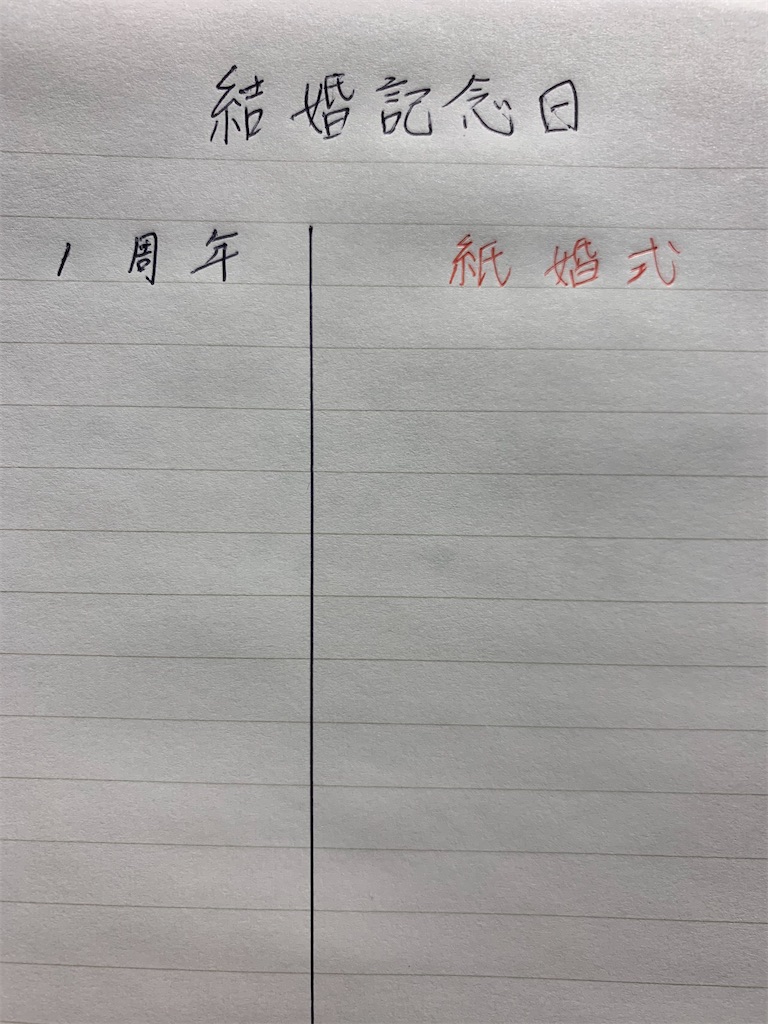 結婚記念日
1周年 紙婚式